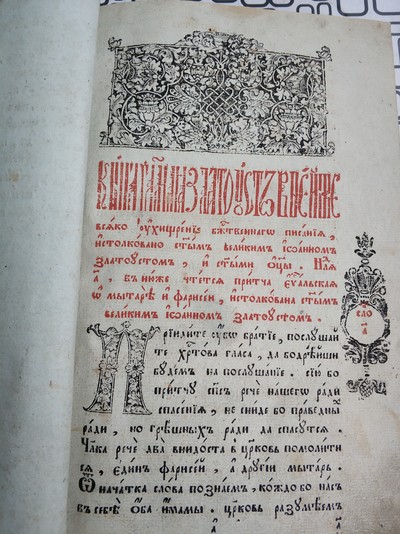 Кни́га гл҃емаѧ златоꙋ́стъ в не́йже
всѧ́ко ᲂу҆хищре́нїе бж҃е́ственнагѡ писа́нїѧ,
и҆столкова́но ст҃ы́мъ вели́кимъ і҆ѡа́нномъ
златоꙋ́стомъ, и҆ ст҃ы́ми ѻ҆ц҃ы̀. нл҃ѧ
а҃, въ не́йже чте́тсѧ при́тча є҆ѵⷢ҇льскаѧ
ѡ҆ мытарѣ̀ и҆ фарисе́и, и҆столко́вана ст҃ы́мъ
вели́кимъ і҆ѡа́нномъ златоꙋ́стомъ.
Прїиди́те ᲂу҆́бѡ бра́тїе, послꙋ́шай
те хрⷭ҇то́ва гла́са, да бодрѣ́йши
бꙋ́демъ на послꙋша́нїе. сїю̀ бо
при́тчꙋ сп҃съ речѐ на́шегѡ ра́ди
спасе́нїѧ, не сни́де бо пра́ведныⷯ
ра́ди, но грѣ́шныхъ ра́ди да спасꙋ́тсѧ.
Чл҃ка речѐ два̀ внидо́ста в це́рковь помоли́ти
сѧ, є҆ди́нъ фарисе́й, а҆ дрꙋгі́й мыта́рь.
Ѿ нача́тка сло́ва позна́емъ, ко́ждо бо на́съ
въ себѣ̀ ѻ҆́ба и҆́мамы. це́рковь разꙋмѣ́емъ
сло
а҃
а҃
а҃